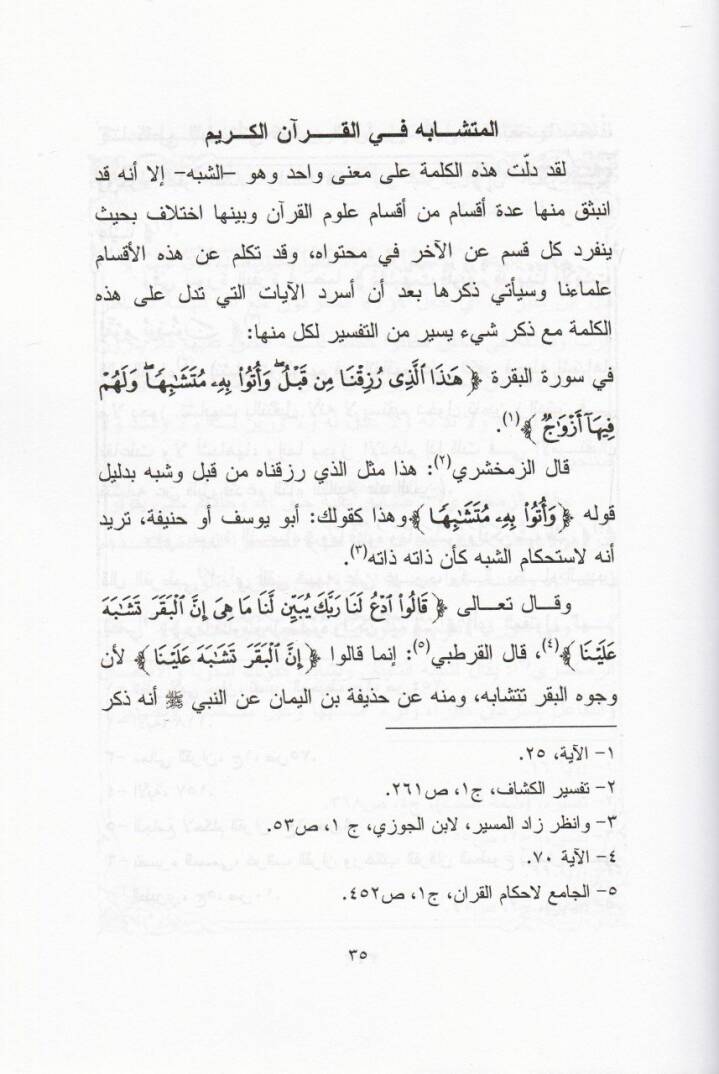 المتشابه في القرآن الكريم
لقد دلّت هذه الكلمة على معنى واحد وهو –الشبه– إلا أنه قد
انبثق منها عدة أقسام من أقسام علوم القرآن وبينها اختلاف بحيث
ينفرد كل قسم عن الآخر في محتواه، وقد تكلم عن هذه الأقسام
علماءنا وسيأتي ذكرها بعد أن أسرد الآيات التي تدل على هذه
الكلمة مع ذكر شيء يسير من التفسير لكل منها:
في سورة البقرة ﴿ هَٰذَا ٱلَّذِى رُزِقْنَا مِن قَبْلُ ۖ وَأُتُوا۟ بِهِۦ مُتَشَٰبِهًا ۖ وَلَهُمْ
فِيهَآ أَزْوَٰجٌ ﴾(١).
قال الزمخشري(٢): هذا مثل الذي رزقناه من قبل وشبه بدليل
قوله ﴿ وَأُتُوا۟ بِهِۦ مُتَشَٰبِهًا ﴾ وهذا كقولك: أبو يوسف أو حنيفة، تريد
أنه لاستحكام الشبه كأن ذاته ذاته(٣).
وقال تعالى ﴿ قَالُوا۟ ٱدْعُ لَنَا رَبَّكَ يُبَيِّن لَّنَا مَا هِىَ إِنَّ ٱلْبَقَرَ تَشَٰبَهَ
عَلَيْنَا ﴾(٤)، قال القرطبي(٥): إنما قالوا ﴿ إِنَّ ٱلْبَقَرَ تَشَٰبَهَ عَلَيْنَا ﴾ لأن
وجوه البقر تتشابه، ومنه عن حذيفة بن اليمان عن النبي ﷺ أنه ذكر
١- الآية، ٢٥.
٢- تفسير الكشاف، ج١، ص٢٦١.
٣- وانظر زاد المسير، لابن الجوزي، ج ١، ص٥٣.
٤- الآية ٧٠.
٥- الجامع لاحكام القران، ج١، ص٤٥٢.
٣٥